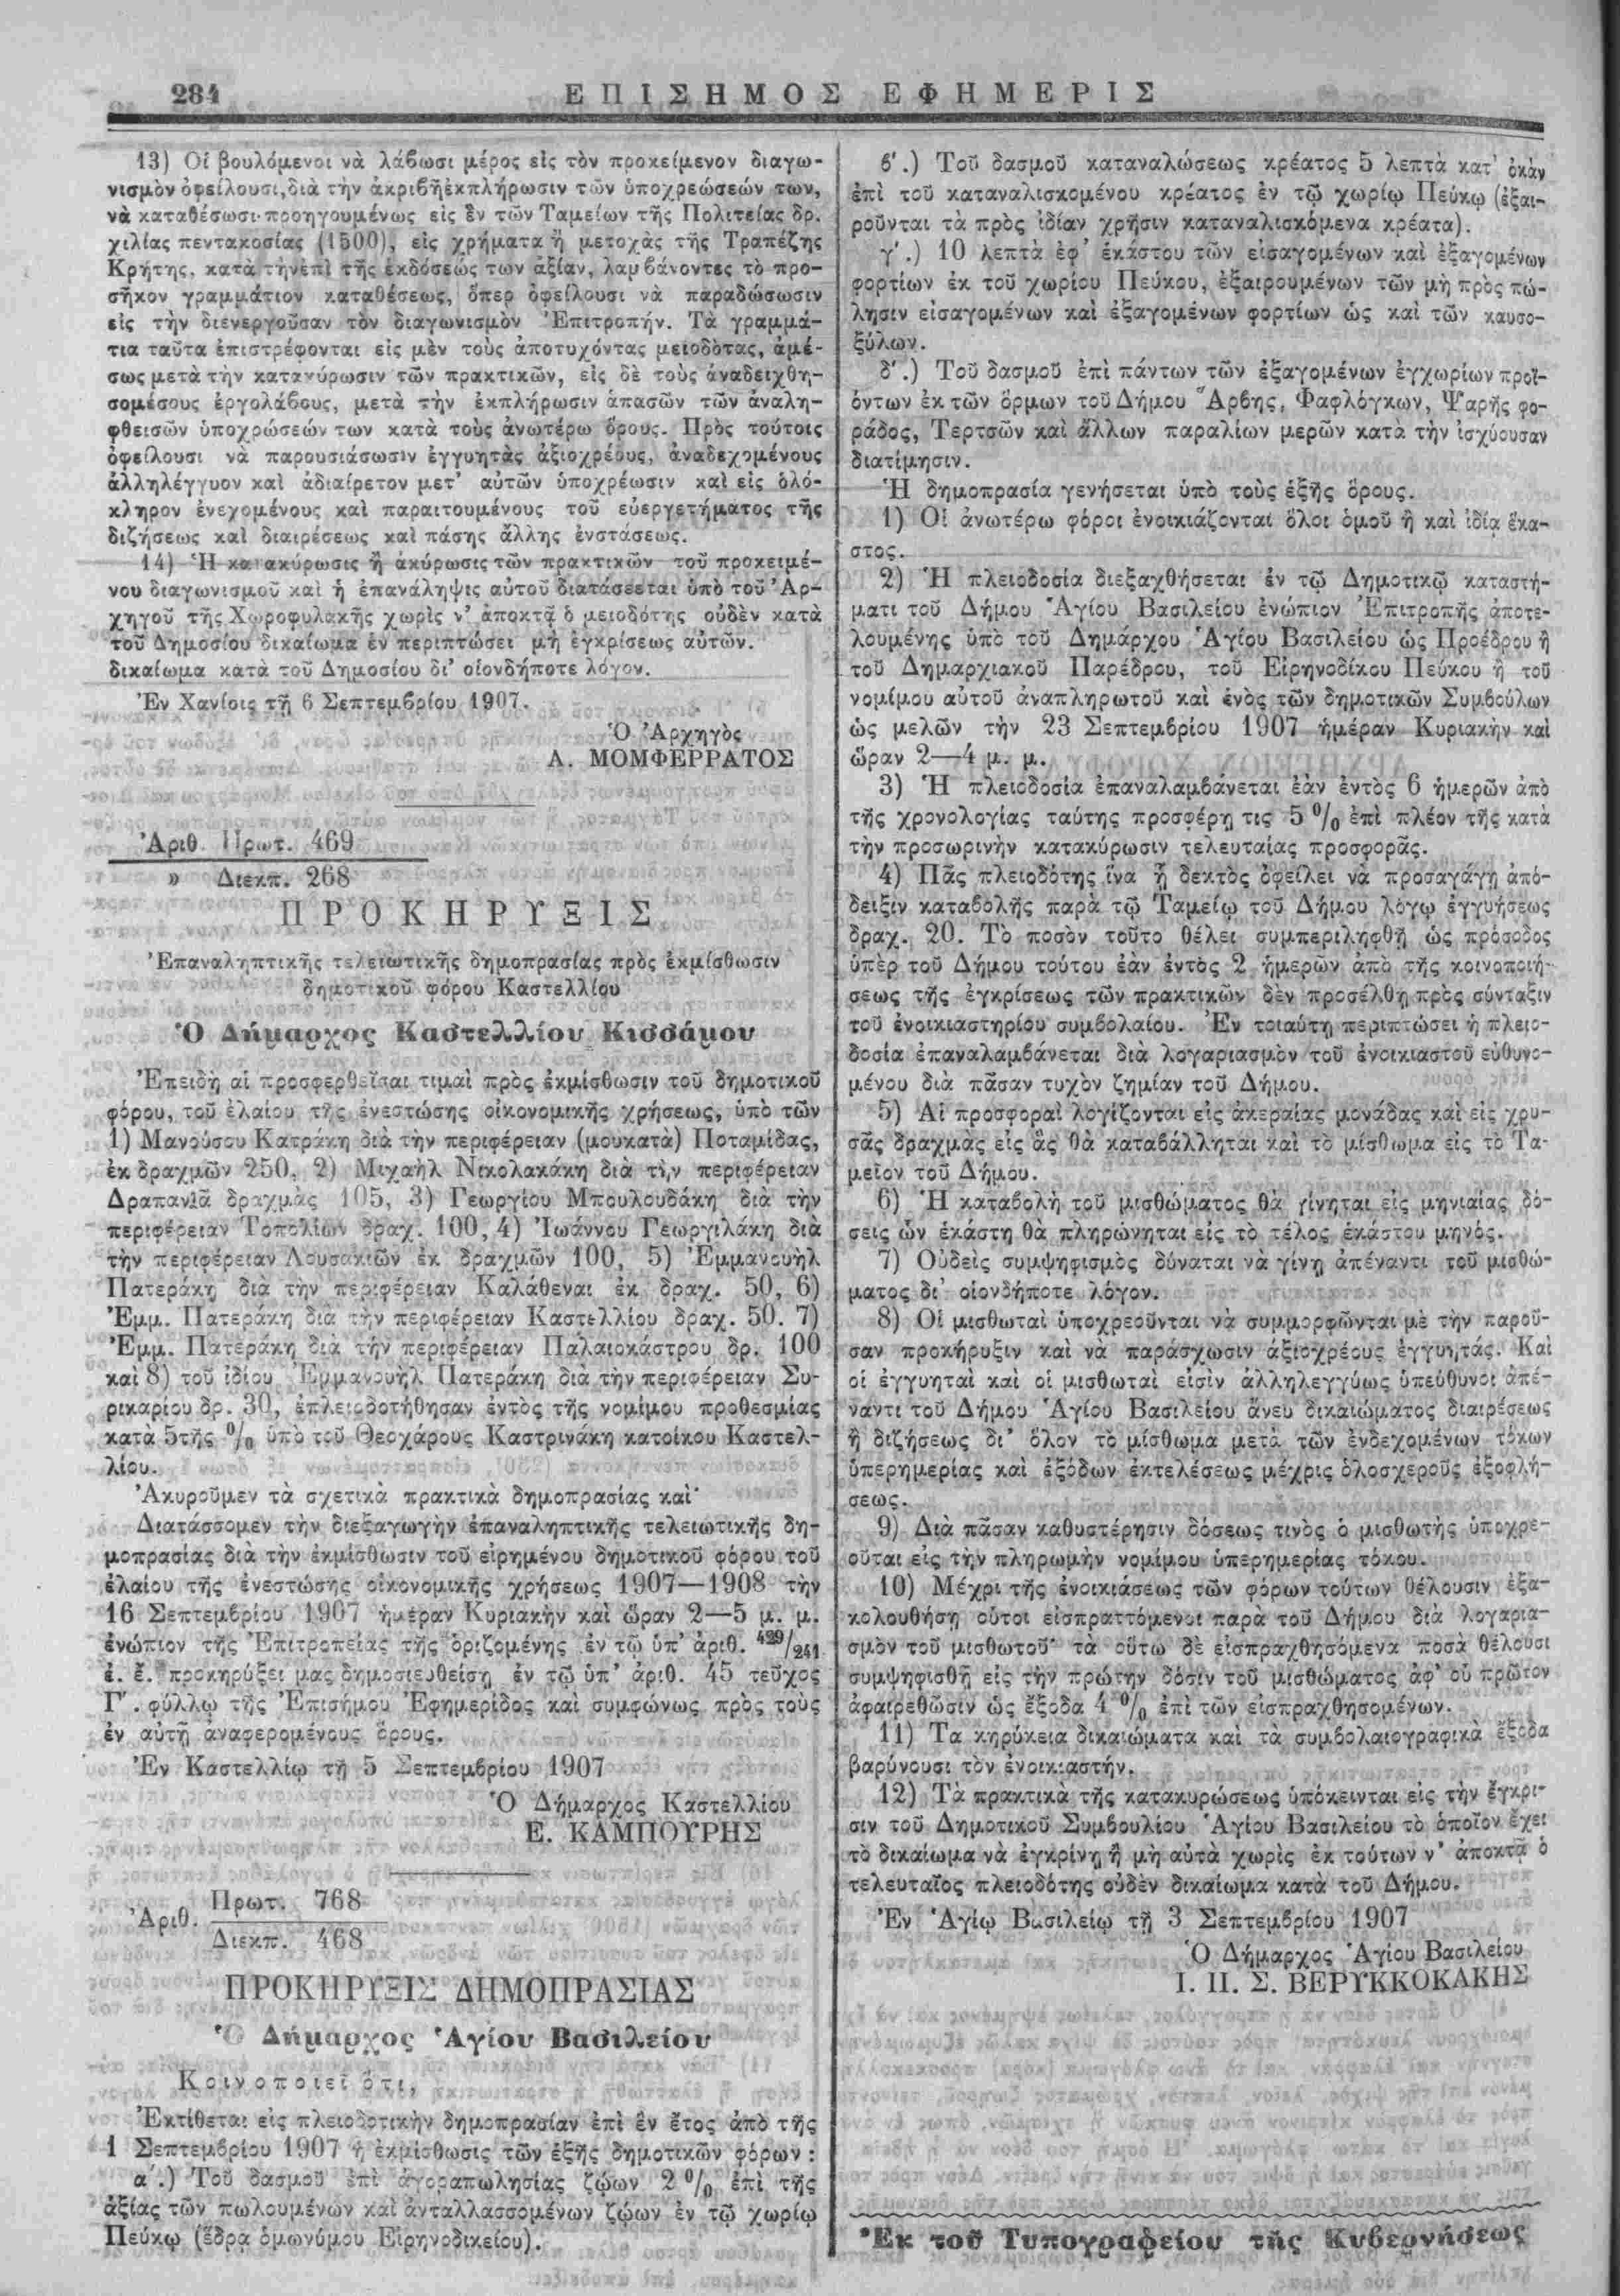 284
ΕΠΙΣΗΜΟΣ ΕΦΗΜΕΡΙΣ
13) Οἱ βουλόμενοι νὰ λάβωσι μέρος εἰς τὸν προκείμενον διαγω-
νισμὸν ὀφείλουσι, διὰ τὴν ἀκριβῆ ἐκπλήρωσιν τῶν ὑποχρεώσεών των,
νὰ καταθέσωσι προηγουμένως εἰς ἓν τῶν Ταμείων τῆς Πολιτείας δρ.
χιλίας πεντακοσίας (1500), εἰς χρήματα ἢ μετοχὰς τῆς Τραπέζης
Κρήτης, κατὰ τὴν ἐπὶ τῆς ἐκδόσεώς των ἀξίαν, λαμβάνοντες τὸ προ-
σῆκον γραμμάτιον καταθέσεως, ὅπερ ὀφείλουσι νὰ παραδώσωσιν
εἰς τὴν διενεργοῦσαν τὸν διαγωνισμὸν Ἐπιτροπήν. Τὰ γραμμά-
τια ταῦτα ἐπιστρέφονται εἰς μὲν τοὺς ἀποτυχόντας μειοδότας, ἀμέ-
σως μετὰ τὴν κατακύρωσιν τῶν πρακτικῶν, εἰς δὲ τοὺς ἀναδειχθη-
σομέσους ἐργολάβους, μετὰ τὴν ἐκπλήρωσιν ἁπασῶν τῶν ἀναλη-
φθεισῶν ὑποχρώσεών των κατὰ τοὺς ἀνωτέρω ὅρους. Πρὸς τούτοις
ὀφείλουσι νὰ παρουσιάσωσιν ἐγγυητὰς ἀξιοχρέους, ἀναδεχομένους
ἀλληλέγγυον καὶ ἀδιαίρετον μετ' αὐτῶν ὑποχρέωσιν καὶ εἰς ὁλό-
κληρον ἐνεχομένους καὶ παραιτουμένους τοῦ εὐεργετήματος τῆς
διζήσεως καὶ διαιρέσεως καὶ πάσης ἄλλης ἐνστάσεως.
14) Ἡ κατακύρωσις ἢ ἀκύρωσις τῶν πρακτικῶν τοῦ προκειμέ-
νου διαγωνισμοῦ καὶ ἡ ἐπανάληψις αὐτοῦ διατάσσεται ὑπὸ τοῦ Ἀρ-
χηγοῦ τῆς Χωροφυλακῆς χωρὶς ν' ἀποκτᾷ ὁ μειοδότης οὐδὲν κατὰ
τοῦ Δημοσίου δικαίωμα ἐν περιπτώσει μὴ ἐγκρίσεως αὐτῶν.
δικαίωμα κατὰ τοῦ Δημοσίου δι' οἱονδήποτε λόγον.
Ἐν Χανίοις τῇ 6 Σεπτεμβρίου 1907.
Ὁ Ἀρχηγὸς
Α. ΜΟΜΦΕΡΡΑΤΟΣ
Ἀριθ. Πρωτ. 469
» Διεκπ. 268
ΠΡΟΚΗΡΥΞΙΣ
Ἐπαναληπτικῆς τελειωτικῆς δημοπρασίας πρὸς ἐκμίσθωσιν
δημοτικοῦ φόρου Καστελλίου
Ὁ Δήμαρχος Καστελλίου Κισσάμου
Ἐπειδὴ αἱ προσφερθεῖσαι τιμαὶ πρὸς ἐκμίσθωσιν τοῦ δημοτικοῦ
φόρου, τοῦ ἐλαίου τῆς ἐνεστώσης οἰκονομικῆς χρήσεως, ὑπὸ τῶν
1) Μανούσου Κατράκη διὰ τὴν περιφέρειαν (μουκατὰ) Ποταμίδας,
ἐκ δραχμῶν 250, 2) Μιχαὴλ Νικολακάκη διὰ τὴν περιφέρειαν
Δραπανιᾶ δραχμὰς 105, 3) Γεωργίου Μπουλουδάκη διὰ τὴν
περιφέρειαν Τοπολίων δραχ. 100, 4) Ἰωάννου Γεωργιλάκη διὰ
τὴν περιφέρειαν Λουσακιῶν ἐκ δραχμῶν 100, 5) Ἐμμανουὴλ
Πατεράκη διὰ τὴν περιφέρειαν Καλάθεναι ἐκ δραχ. 50, 6)
Ἐμμ. Πατεράκη διὰ τὴν περιφέρειαν Καστελλίου δραχ. 50. 7)
Ἐμμ. Πατεράκη διὰ τήν περιφέρειαν Παλαιοκάστρου δρ. 100
καὶ 8) τοῦ ἰδίου Ἐμμανουὴλ Πατεράκη διὰ τὴν περιφέρειαν Συ-
ρικαρίου δρ. 30, ἐπλειοδοτήθησαν ἐντὸς τῆς νομίμου προθεσμίας
κατὰ 5 τῆς % ὑπὸ τοῦ Θεοχάρους Καστρινάκη κατοίκου Καστελ-
λίου.
Ἀκυροῦμεν τὰ σχετικὰ πρακτικὰ δημοπρασίας καὶ
Διατάσσομεν τὴν διεξαγωγὴν ἐπαναληπτικῆς τελειωτικῆς δη-
μοπρασίας διὰ τὴν ἐκμίσθωσιν τοῦ εἰρημένου δημοτικοῦ φόρου τοῦ
ἐλαίου τῆς ἐνεστώσης οἰκονομικῆς χρήσεως 1907—1908 τὴν
16 Σεπτεμβρίου 1907 ἡμέραν Κυριακὴν καὶ ὥραν 2—5 μ. μ.
ἐνώπιον τῆς Ἐπιτροπείας τῆς ὁριζομένης ἐν τῷ ὑπ' ἀριθ. 429/241
ἐ. ἔ. προκηρύξει μας δημοσιευθείσῃ ἐν τῷ ὑπ' ἀριθ. 45 τεῦχος
Γ'. φύλλῳ τῆς Ἐπισήμου Ἐφημερίδος καὶ συμφώνως πρὸς τοὺς
ἐν αὐτῇ ἀναφερομένους ὅρους.
Ἐν Καστελλίῳ τῇ 5 Σεπτεμβρίου 1907
Ὁ Δήμαρχος Καστελλίου
Ε. ΚΑΜΠΟΥΡΗΣ
Ἀριθ. Πρωτ. 768
Διεκπ. 468
ΠΡΟΚΗΡΥΞΙΣ ΔΗΜΟΠΡΑΣΙΑΣ
Ὁ Δήμαρχος Ἁγίου Βασιλείου
Κοινοποιεῖ ὅτι,
Ἐκτίθεται εἰς πλειοδοτικὴν δημοπρασίαν ἐπὶ ἓν ἔτος ἀπὸ τῆς
1 Σεπτεμβρίου 1907 ἡ ἐκμίσθωσις τῶν ἑξῆς δημοτικῶν φόρων :
α'.) Τοῦ δασμοῦ ἐπὶ ἀγοραπωλησίας ζῴων 2 % ἐπὶ τῆς
ἀξίας τῶν πωλουμένων καὶ ἀνταλλασσομένων ζῴων ἐν τῷ χωρίῳ
Πεύκῳ (ἕδρᾳ ὁμωνύμου Εἰρηνοδικείου).
β'.) Τοῦ δασμοῦ καταναλώσεως κρέατος 5 λεπτὰ κατ' ὀκὰν
ἐπὶ τοῦ καταναλισκομένου κρέατος ἐν τῷ χωρίῳ Πεύκῳ (ἐξαι-
ροῦνται τὰ πρὸς ἰδίαν χρῆσιν καταναλισκόμενα κρέατα).
γ'.) 10 λεπτὰ ἐφ' ἑκάστου τῶν εἰσαγομένων καὶ ἐξαγομένων
φορτίων ἐκ τοῦ χωρίου Πεύκου, ἐξαιρουμένων τῶν μὴ πρὸς πώ-
λησιν εἰσαγομένων καὶ ἐξαγομένων φορτίων ὡς καὶ τῶν καυσο-
ξύλων.
δ'.) Τοῦ δασμοῦ ἐπὶ πάντων τῶν ἐξαγομένων ἐγχωρίων προϊ-
όντων ἐκ τῶν ὅρμων τοῦ Δήμου Ἄρβης, Φαφλόγκων, Ψαρῆς φο-
ράδος, Τερτσῶν καὶ ἄλλων παραλίων μερῶν κατὰ τὴν ἰσχύουσαν
διατίμησιν.
Ἡ δημοπρασία γενήσεται ὑπὸ τοὺς ἑξῆς ὅρους.
1) Οἱ ἀνωτέρω φόροι ἐνοικιάζονται ὅλοι ὁμοῦ ἢ καὶ ἰδίᾳ ἕκα-
στος.
2) Ἡ πλειοδοσία διεξαχθήσεται ἐν τῷ Δημοτικῷ καταστή-
ματι τοῦ Δήμου Ἁγίου Βασιλείου ἐνώπιον Ἐπιτροπῆς ἀποτε-
λουμένης ὑπὸ τοῦ Δημάρχου Ἁγίου Βασιλείου ὡς Προέδρου ἢ
τοῦ Δημαρχιακοῦ Παρέδρου, τοῦ Εἰρηνοδίκου Πεύκου ἢ τοῦ
νομίμου αὐτοῦ ἀναπληρωτοῦ καὶ ἑνὸς τῶν δημοτικῶν Συμβούλων
ὡς μελῶν τὴν 23 Σεπτεμβρίου 1907 ἡμέραν Κυριακὴν καὶ
ὥραν 2—4 μ. μ.
3) Ἡ πλειοδοσία ἐπαναλαμβάνεται ἐὰν ἐντὸς 6 ἡμερῶν ἀπὸ
τῆς χρονολογίας ταύτης προσφέρῃ τις 5 % ἐπὶ πλέον τῆς κατὰ
τὴν προσωρινὴν κατακύρωσιν τελευταίας προσφορᾶς.
4) Πᾶς πλειοδότης ἵνα ᾖ δεκτὸς ὀφείλει νὰ προσαγάγῃ ἀπό-
δειξιν καταβολῆς παρὰ τῷ Ταμείῳ τοῦ Δήμου λόγῳ ἐγγυήσεως
δραχ. 20. Τὸ ποσὸν τοῦτο θέλει συμπεριληφθῇ ὡς πρόσοδος
ὑπὲρ τοῦ Δήμου τούτου ἐὰν ἐντὸς 2 ἡμερῶν ἀπὸ τῆς κοινοποιή-
σεως τῆς ἐγκρίσεως τῶν πρακτικῶν δὲν προσέλθῃ πρὸς σύνταξιν
τοῦ ἐνοικιαστηρίου συμβολαίου. Ἐν τοιαύτῃ περιπτώσει ἡ πλειο-
δοσία ἐπαναλαμβάνεται διὰ λογαριασμὸν τοῦ ἐνοικιαστοῦ εὐθυνο-
μένου διὰ πᾶσαν τυχὸν ζημίαν τοῦ Δήμου.
5) Αἱ προσφοραὶ λογίζονται εἰς ἀκεραίας μονάδας καὶ εἰς χρυ-
σᾶς δραχμὰς εἰς ἃς θὰ καταβάλληται καὶ τὸ μίσθωμα εἰς τὸ Τα-
μεῖον τοῦ Δήμου.
6) Ἡ καταβολὴ τοῦ μισθώματος θὰ γίνηται εἰς μηνιαίας δό-
σεις ὧν ἑκάστη θὰ πληρώνηται εἰς τὸ τέλος ἑκάστου μηνός.
7) Οὐδεὶς συμψηφισμὸς δύναται νὰ γίνῃ ἀπέναντι τοῦ μισθώ-
ματος δι' οἱονδήποτε λόγον.
8) Οἱ μισθωταὶ ὑποχρεοῦνται νὰ συμμορφῶνται μὲ τὴν παροῦ-
σαν προκήρυξιν καὶ νὰ παράσχωσιν ἀξιοχρέους ἐγγυητάς. Καὶ
οἱ ἐγγυηταὶ καὶ οἱ μισθωταὶ εἰσὶν ἀλληλεγγύως ὑπεύθυνοι ἀπέ-
ναντι τοῦ Δήμου Ἁγίου Βασιλείου ἄνευ δικαιώματος διαιρέσεως
ἢ διζήσεως δι' ὅλον τὸ μίσθωμα μετὰ τῶν ἐνδεχομένων τόκων
ὑπερημερίας καὶ ἐξόδων ἐκτελέσεως μέχρις ὁλοσχεροῦς ἐξοφλή-
σεως.
9) Διὰ πᾶσαν καθυστέρησιν δόσεως τινὸς ὁ μισθωτὴς ὑποχρε-
οῦται εἰς τὴν πληρωμὴν νομίμου ὑπερημερίας τόκου.
10) Μέχρι τῆς ἐνοικιάσεως τῶν φόρων τούτων θέλουσιν ἐξα-
κολουθήσῃ οὗτοι εἰσπραττόμενοι παρὰ τοῦ Δήμου διὰ λογαρια-
σμὸν τοῦ μισθωτοῦ· τὰ οὕτω δὲ εἰσπραχθησόμενα ποσὰ θέλουσι
συμψηφισθῆ εἰς τὴν πρώτην δόσιν τοῦ μισθώματος ἀφ' οὗ πρῶτον
ἀφαιρεθῶσιν ὡς ἔξοδα 4 % ἐπὶ τῶν εἰσπραχθησομένων.
11) Τα κηρύκεια δικαιώματα καὶ τὰ συμβολαιογραφικὰ ἔξοδα
βαρύνουσι τὸν ἐνοικιαστήν.
12) Τὰ πρακτικὰ τῆς κατακυρώσεως ὑπόκεινται εἰς τὴν ἔγκρι-
σιν τοῦ Δημοτικοῦ Συμβουλίου Ἁγίου Βασιλείου τὸ ὁποῖον ἔχει
τὸ δικαίωμα νὰ ἐγκρίνῃ ἢ μὴ αὐτὰ χωρὶς ἐκ τούτων ν' ἀποκτᾷ ὁ
τελευταῖος πλειοδότης οὐδὲν δικαίωμα κατὰ τοῦ Δήμου.
Ἐν Ἁγίῳ Βασιλείῳ τῇ 3 Σεπτεμβρίου 1907
Ὁ Δήμαρχος Ἁγίου Βασιλείου
Ι. Π. Σ. ΒΕΡΥΚΚΟΚΑΚΗΣ
Ἐκ τοῦ Τυπογραφείου τῆς Κυβερνήσεως